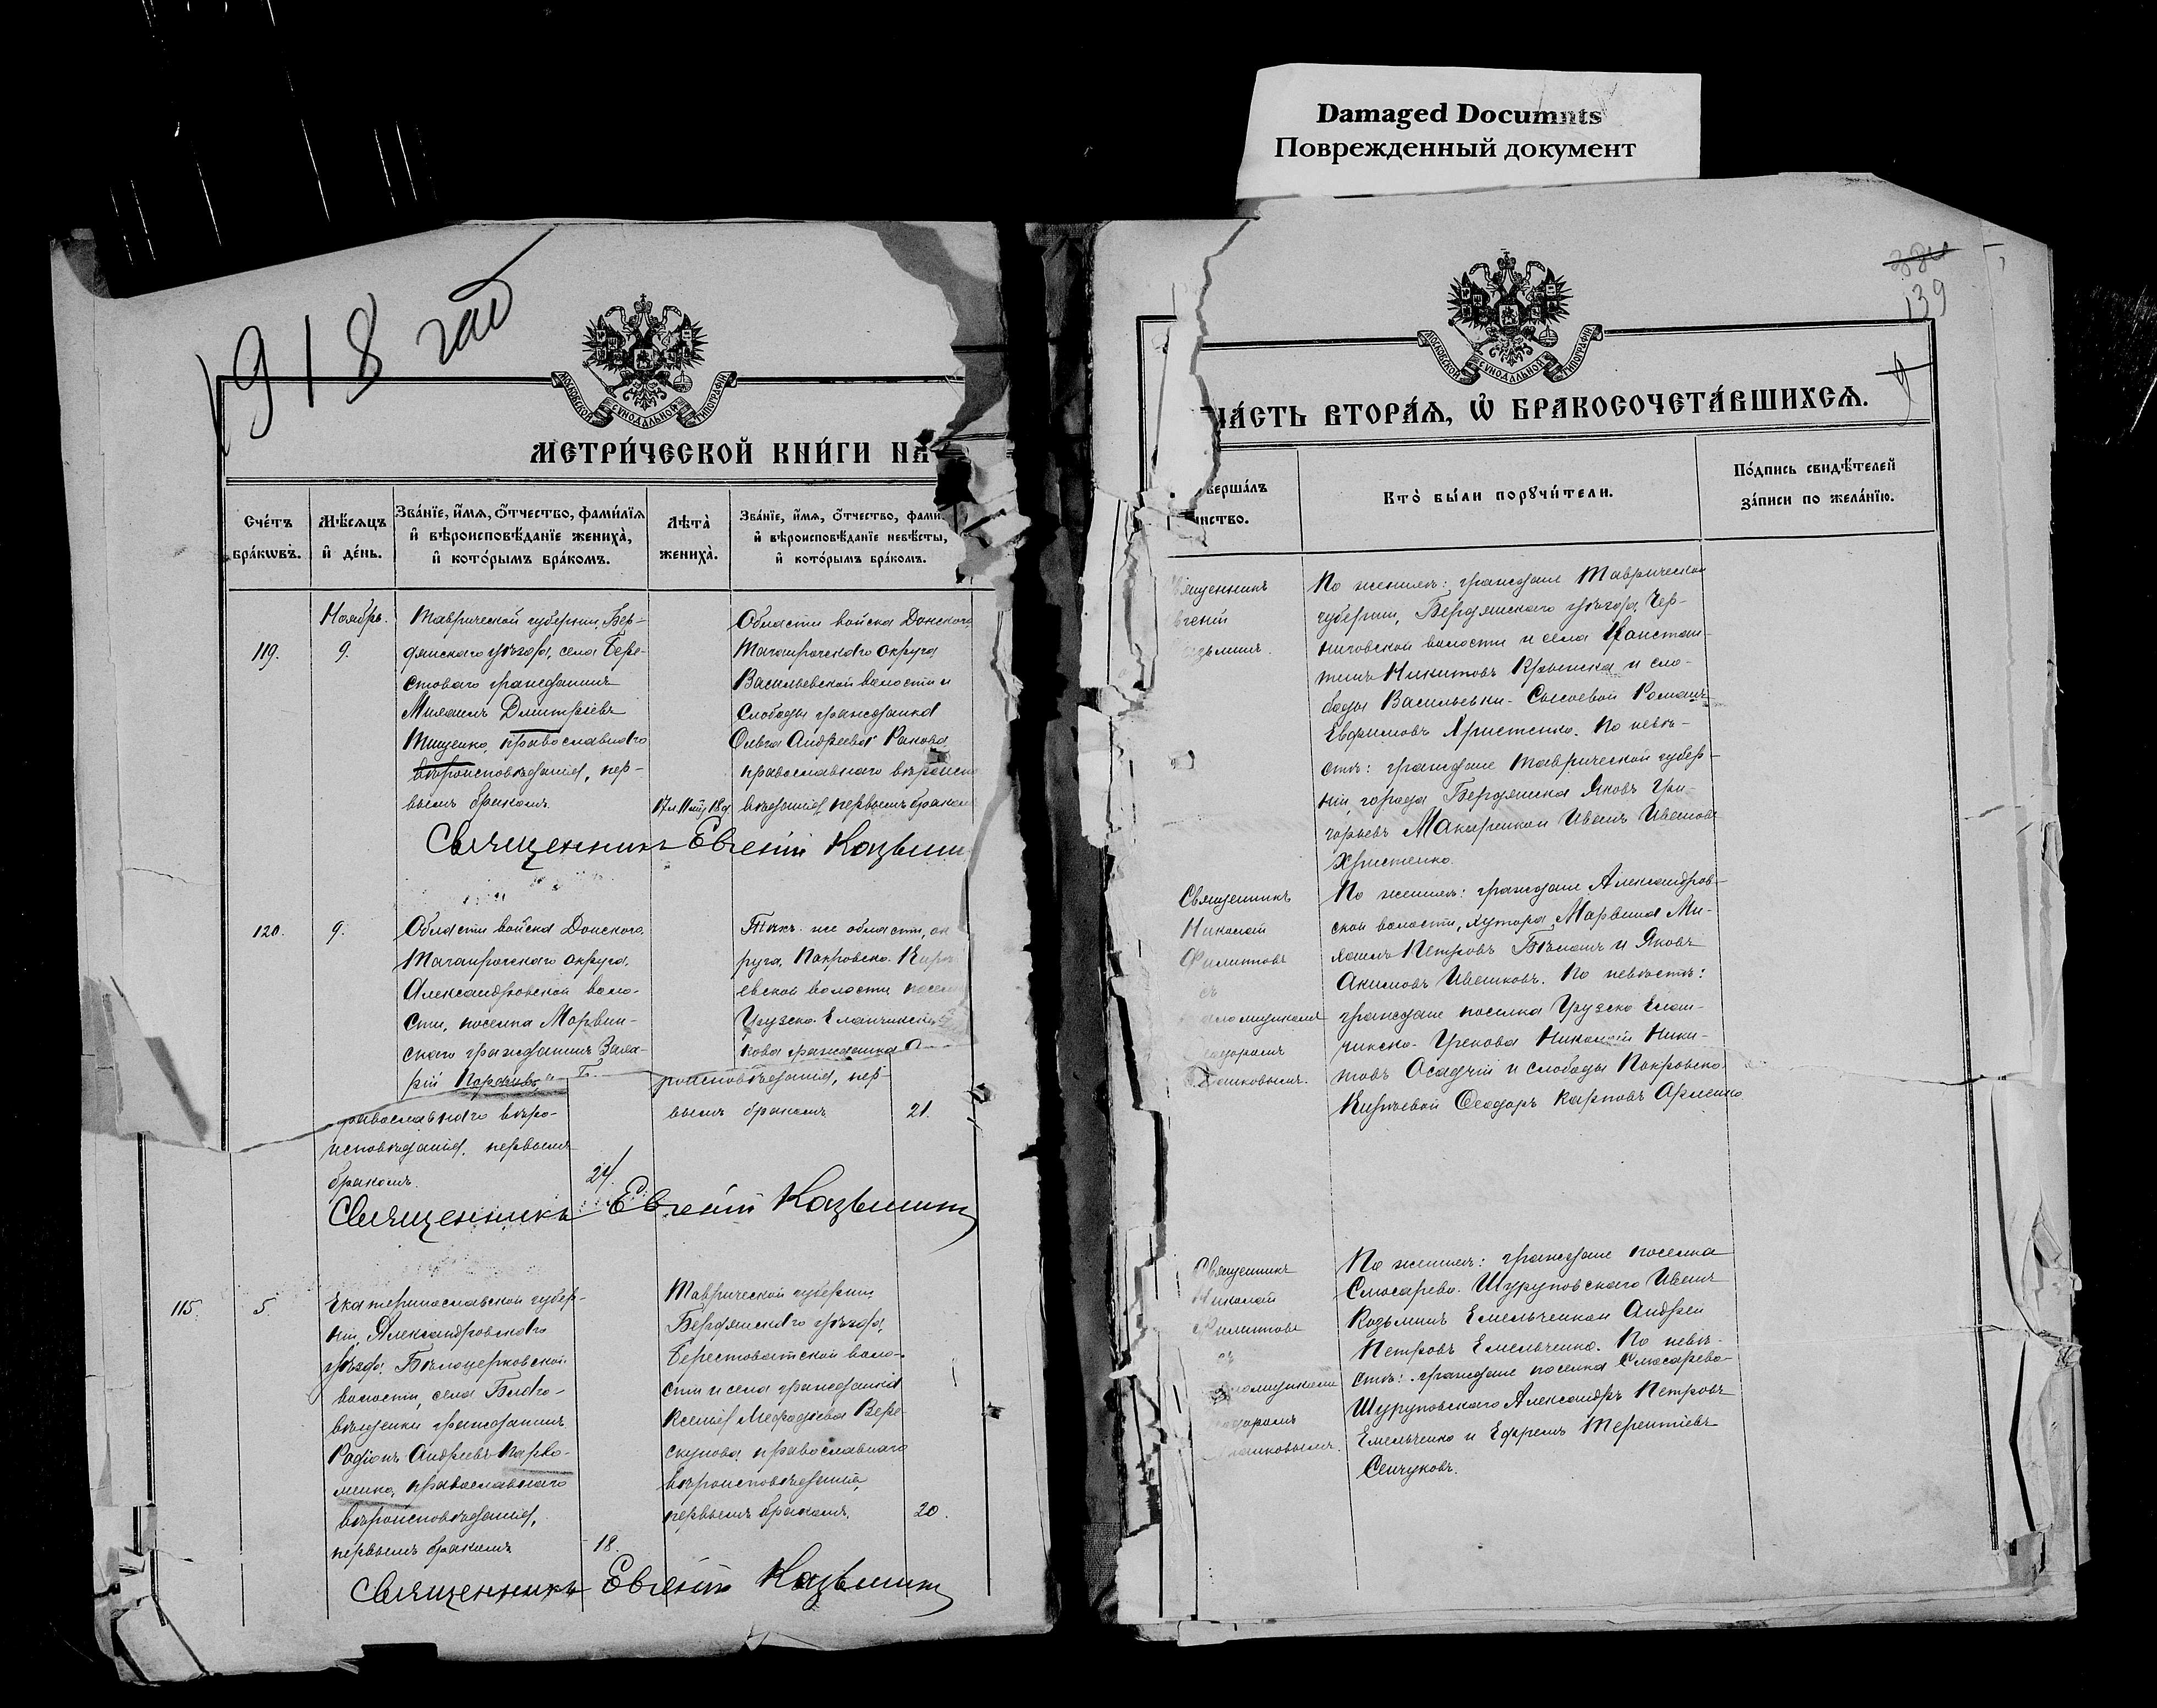 Damaged Documnts
Поврежденный документ
1918 год
МОСКОВСКОЙ СѴНОДАЛЬНОЙ ТИПОГРАФІИ
МЕТРИ́ЧЕСКОЙ КНИ́ГИ НА
Сче́тъ бра́кѡвъ.
Мѣ́сяцъ и҆ де́нь.
Зва́нїе, и҆́мѧ, ѻ҆́тчество, фами́лїѧ
и҆ вѣроисповѣ́данїе жениха̀,
и҆ кото́рымъ бра́комъ.
Лѣ́та̀ жениха̀.
Зва́нїе, и҆́мѧ, ѻ҆́тчество, фами
и҆ вѣроисповѣ́данїе невѣ́сты,
и҆ кото́рымъ бра́комъ.
Ноябрь.
119.
9.
Таврической губерніи, Бер-
дянскаго уѣзда, села Бере-
стоваго гражданинъ
Михаилъ Дмитріевъ
Тищенко, православнаго
вѣроисповѣданія, пер-
вымъ бракомъ
17 л. 11 м. 18 д.
Области войска Донского,
Таганрогскаго округа
Васильевской волости и
слободы гражданка
Ольга Андреева Ракова
православнаго вѣроисп
вѣданія, первымъ бракомъ
Священникъ Евгеній Козьмин
120.
9.
Области войска Донского,
Таганрогскаго округа,
Александровской воло-
сти, поселка Марвин-
скаго гражданинъ Вале-
рій
равославнаго вѣро-
исповѣданія, первымъ
бракомъ.
24.
Такъ же области, ок
руга, Покровско-Кирѣ
евской волости посел
Грузско-Еланчикск
кова гражданка
роисповѣданія, пер-
вымъ бракомъ
21.
Священникъ Евгеній Козьминъ
115.
5
Екатеринославской губер-
ніи, Александровскаго
уѣзда, Бѣлоцерковской
волости, села Благо-
вѣщенки гражданинъ
Радіонъ Андреевъ Пархо-
менко, православнаго
вѣроисповѣданія,
первымъ бракомъ
18.
Таврической губерніи,
Бердянскаго уѣзда,
Берестоватской воло-
сти и села гражданка
Ксенія Мефодіева Вере-
скунова, православнаго
вѣроисповѣданія,
первымъ бракомъ,
20.
Священникъ Евгеній Козьминъ
384
139
МОСКОВСКОЙ СѴНОДАЛЬНОЙ ТИПОГРАФІИ
ЧА́СТЬ ВТОРА́Ѧ, Ѡ҆ БРАКОСОЧЕТА́ВШИХСѦ.
верша́лъ
инство.
Кто̀ бы́ли порꙋчи́тели.
По́дпись свидѣ́телей
за́писи по жела́нїю.
вященникъ
вгеній
озьминъ.
По женихѣ: граждане Таврической
губерніи, Бердянскаго уѣзда, Чер-
ниговской волости и села Констан-
тинъ Никитовъ Крынска и сло-
боды Васильевки-Сысоевой Романъ
Евфимовъ Христенко. По невѣ-
стѣ: граждане Таврической губер-
ніи, города Бердянска Яковъ Гри-
горьевъ Макаренко и Иванъ Ивановъ
Христенко.
Священникъ
Николай
Филиповъ
съ
аломщикомъ
еодоромъ
Ивашковымъ.
По женихѣ: граждане Александров-
ской волости, хутора Марвина Ми-
хаилъ Петровъ Бѣланъ и Яковъ
Акимовъ Ивашковъ. По невѣстѣ:
граждане поселка Грузско Елан-
чикско-Грекова Николай Ники-
товъ Осадчій и слободы Покровско-
Кирѣевой Ѳеодоръ Карповъ
Священникъ
Николай
Филиповъ
съ
аломщикомъ
еодоромъ
ашковымъ.
По женихѣ: граждане поселка
Слюсарево-Шуруповскаго Иванъ
Козьминъ Емельченко и Андрей
Петровъ Емельченко. По невѣ-
стѣ: граждане поселка Слюсарево-
Шуруповскаго Александръ Петровъ
Емельченко и Ефремъ Терентіевъ
Сенчуковъ.